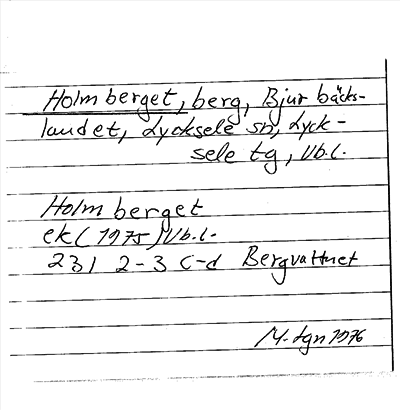 Holmberget, berg, Bjurbäcks-
landet, Lycksele sn, Lyck-
sele tg, Vb.l.
Holmberget
ek (1975) Vb.l.
231 2-3 c-d Bergvattnet
1976